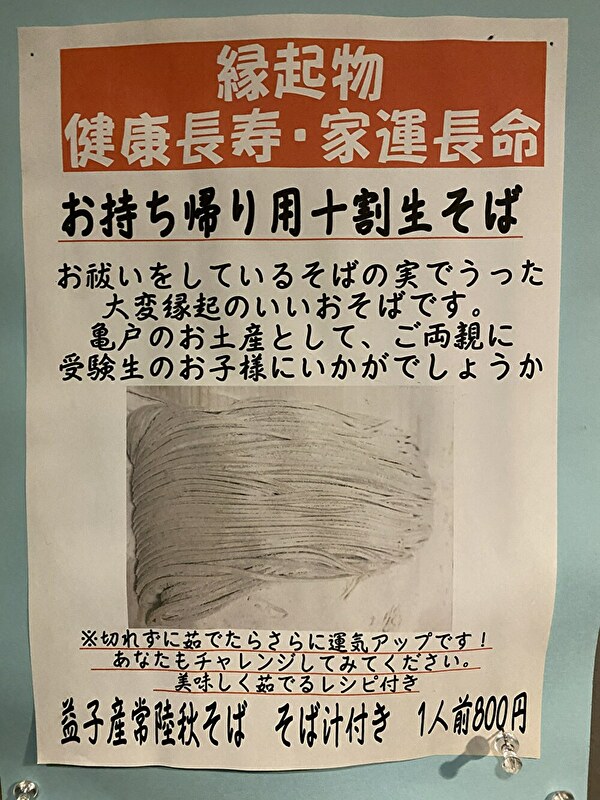 縁起物
健康長寿・家運長命
お持ち帰り用十割生そば
お祓いをしているそばの実でうった
大変縁起のいいおそばです。
亀戸のお土産として、ご両親に
受験生のお子様にいかがでしょうか
※切れずに茹でたらさらに運気アップです！
あなたもチャレンジしてみてください。
美味しく茹でるレシピ付き
益子産常陸秋そば　そば汁付き　1人前800円